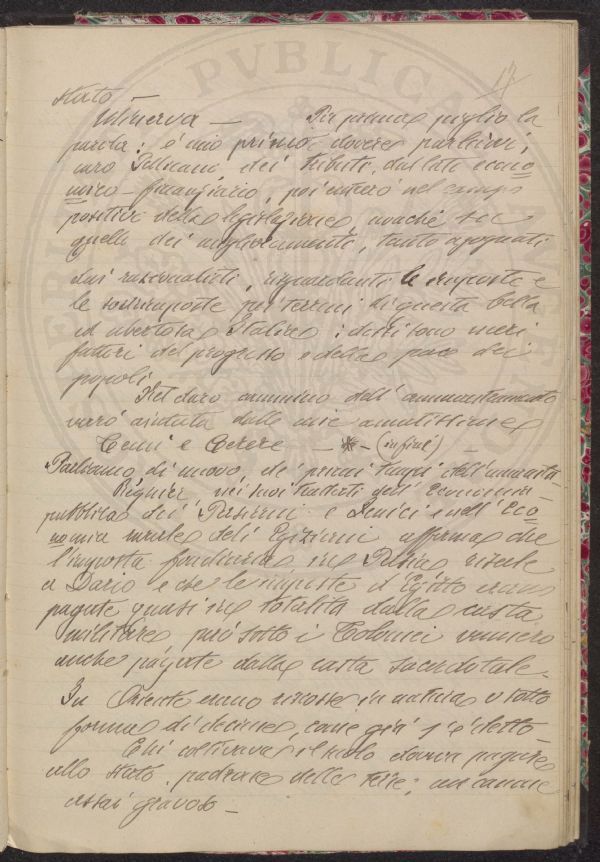 17
stato —
Minerva — Per prima piglio la
parola; è mio primo dovere parlarvi,
caro dei tributi, dal lato econo
mico-finanziario, poi entrerò nel campo
positivo della legislazione nonché su
quello dei miglioramenti, tanto agognati
dai razionalisti, risguardanti le imposte e
le sovrimposte pei terreni di questa bella
ed ubertosa Italia; detti sono veri
fattori del progresso e della pace dei
popoli.
Nel duro cammino dell'ammaestramento
verrò aiutata dalle mie amatissime
Temi e Cerere — * — (infine) —
Parliamo di nuovo dei primi tempi dell'umanità
Régnier nei suoi trattati dell'Economia
pubblica dei Persiani e Fenici e nell'Eco
nomia rurale deli Egiziani afferma che
l'imposta fondiaria in Persia risale
a Dario e che le imposte d'Egitto erano
pagate quasi in totalità dalla casta
militare, però sotto i Tolomei vennero
anche pagate dalla casta sacerdotale.
In Oriente erano riscosse in natura o sotto
forma di decime, come già s'è detto —
Chi coltivava il suolo doveva pagare
allo stato, padrone delle terre, un canone
assai gravoso —
PVBLICA